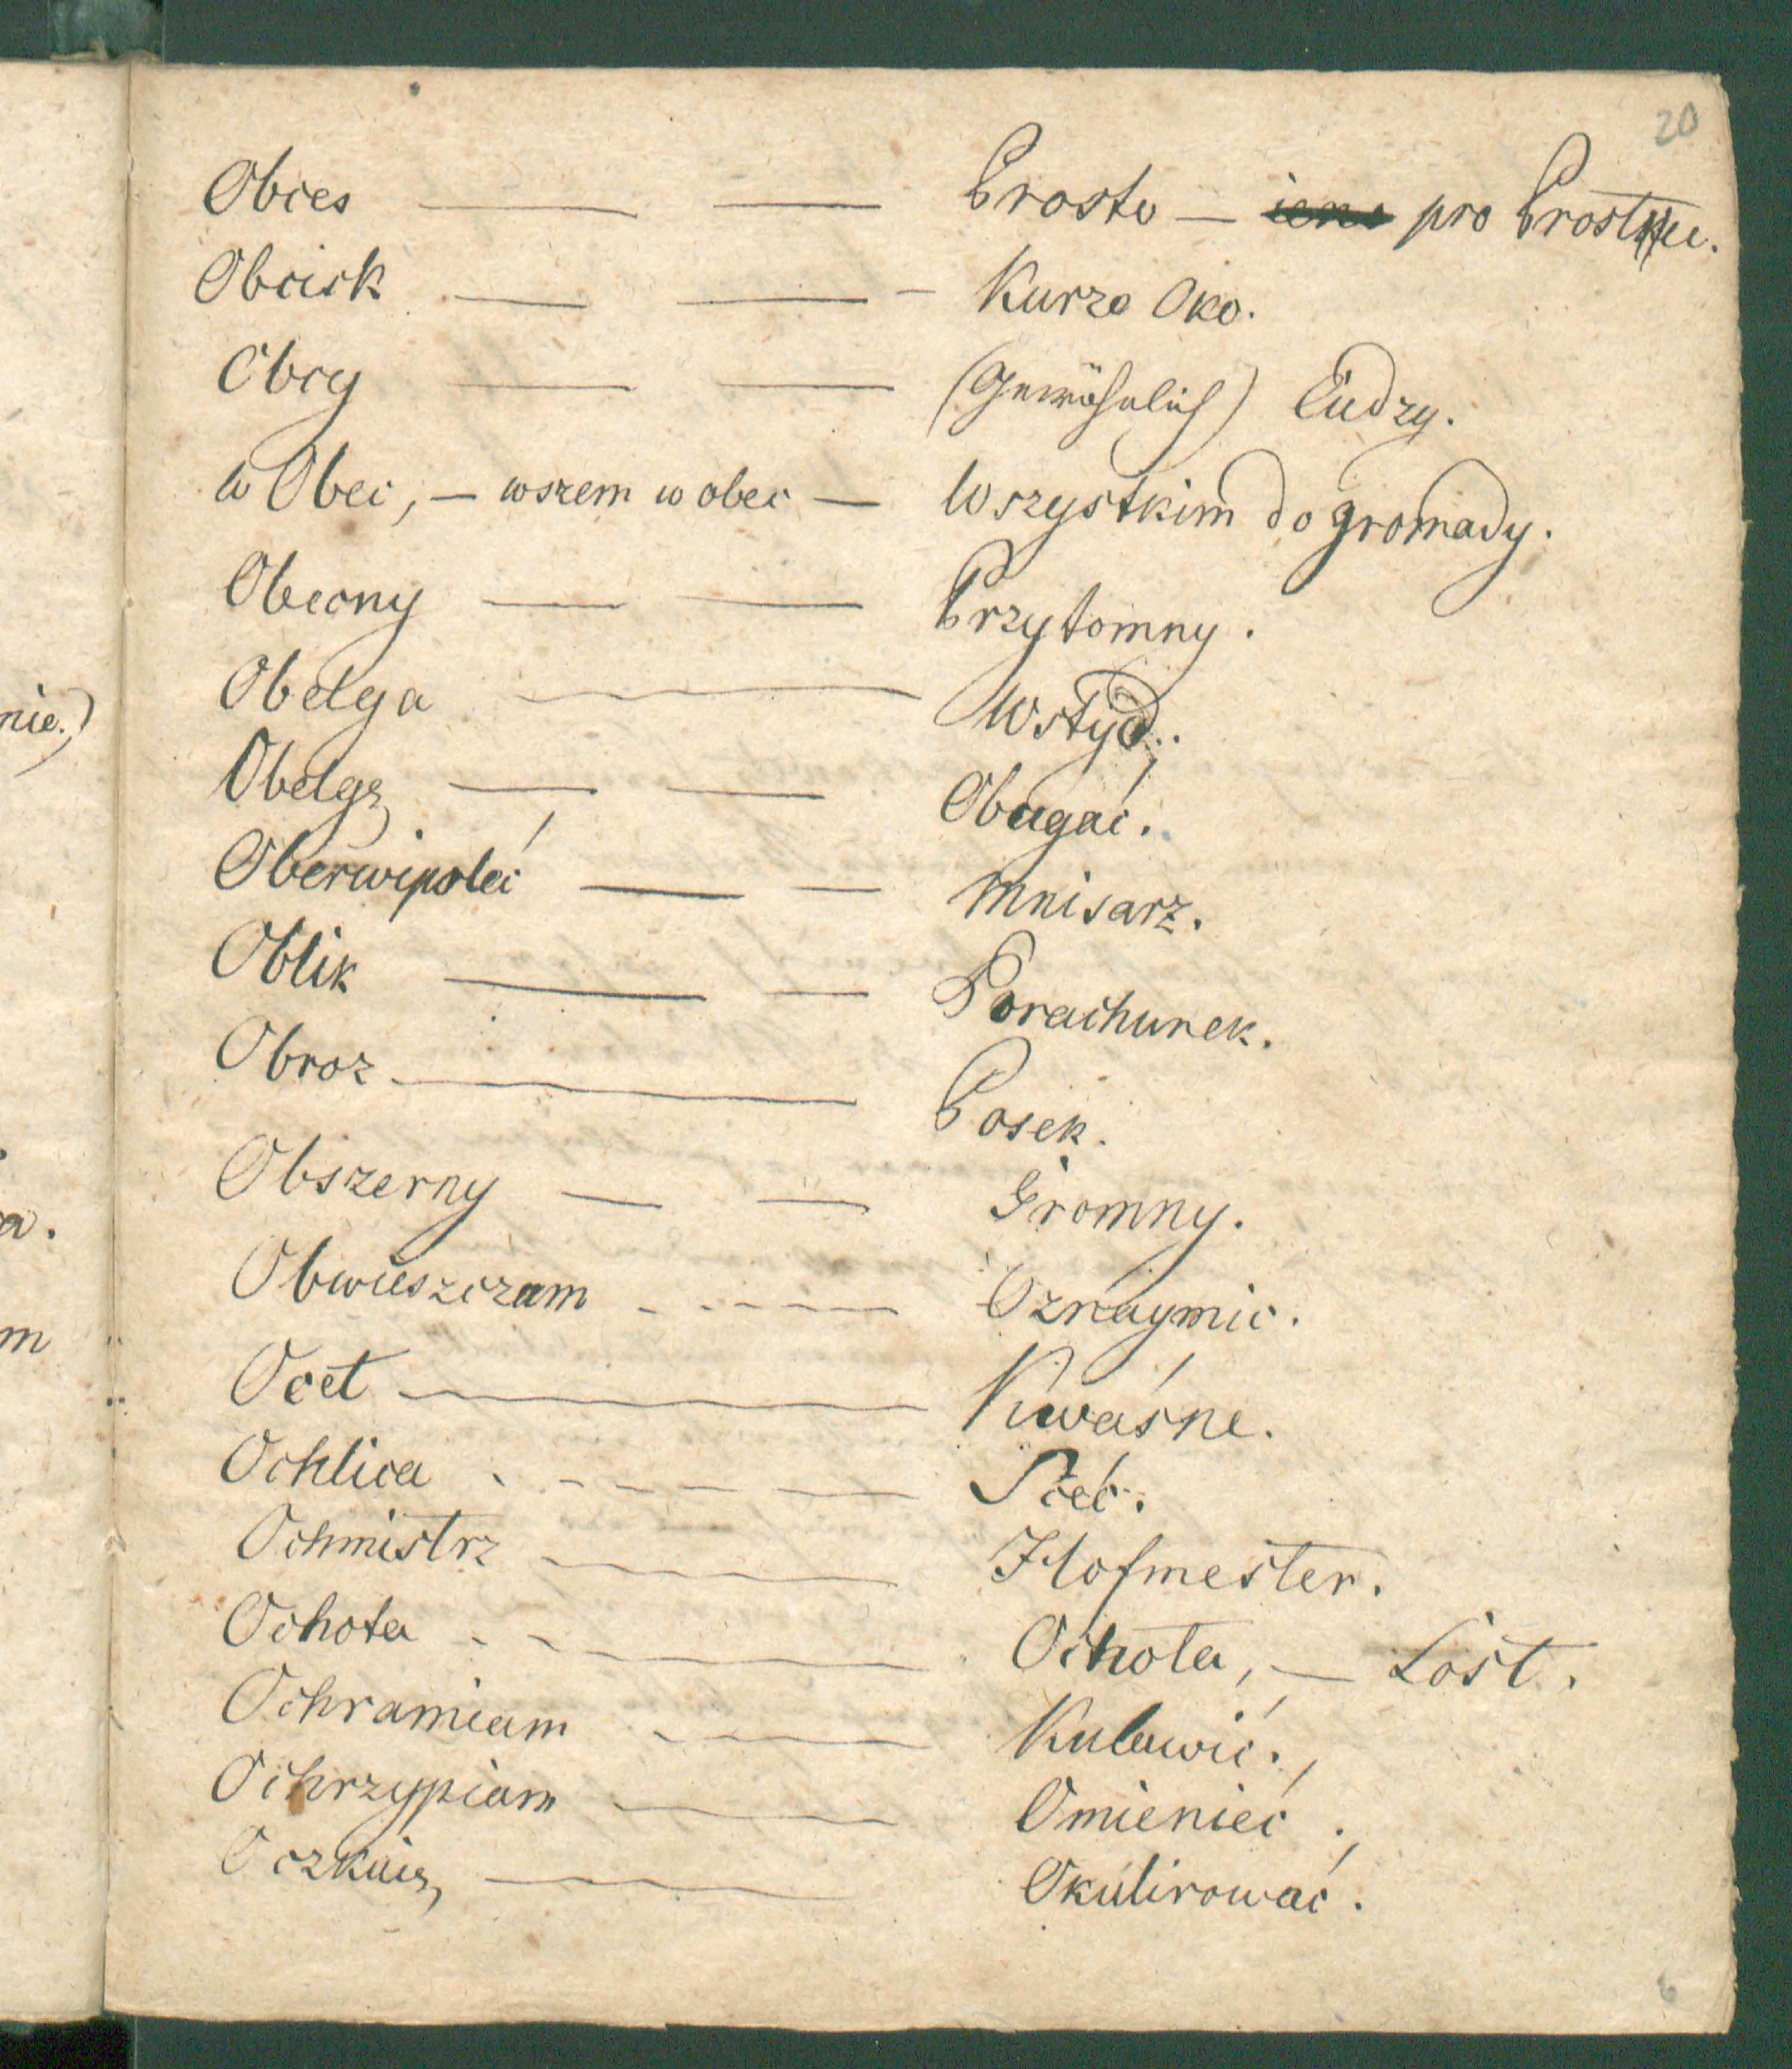 20
Obces — — Prosto — pro Prostku.
Obcisk — — – Kurze Oko.
Obcy — — (Gewöhnlich) Cudzy.
w Obec, — wszem w obec — Wszystkim do gromady.
Obecny — — Przytomny.
Obelga — Wstyd.
Obelgę — — Obugać.
Oberwipołeć — — Mnisarz.
Oblik — — Porachunek.
Obroz — Posek.
Obszerny — — Gromny.
Obwieszczam - - - - — Oznaymic.
Ocet — Kwaśne.
Ochlica - - - — — Sceć.
Ochmistrz — Hofmester.
Ochota - - — Ochota, — Lost.
Ochramiam — Kulawić.
Ochrzypiam — Omienieć.
Oczkuię, — Okulirować.
nie.)
a.
m
6